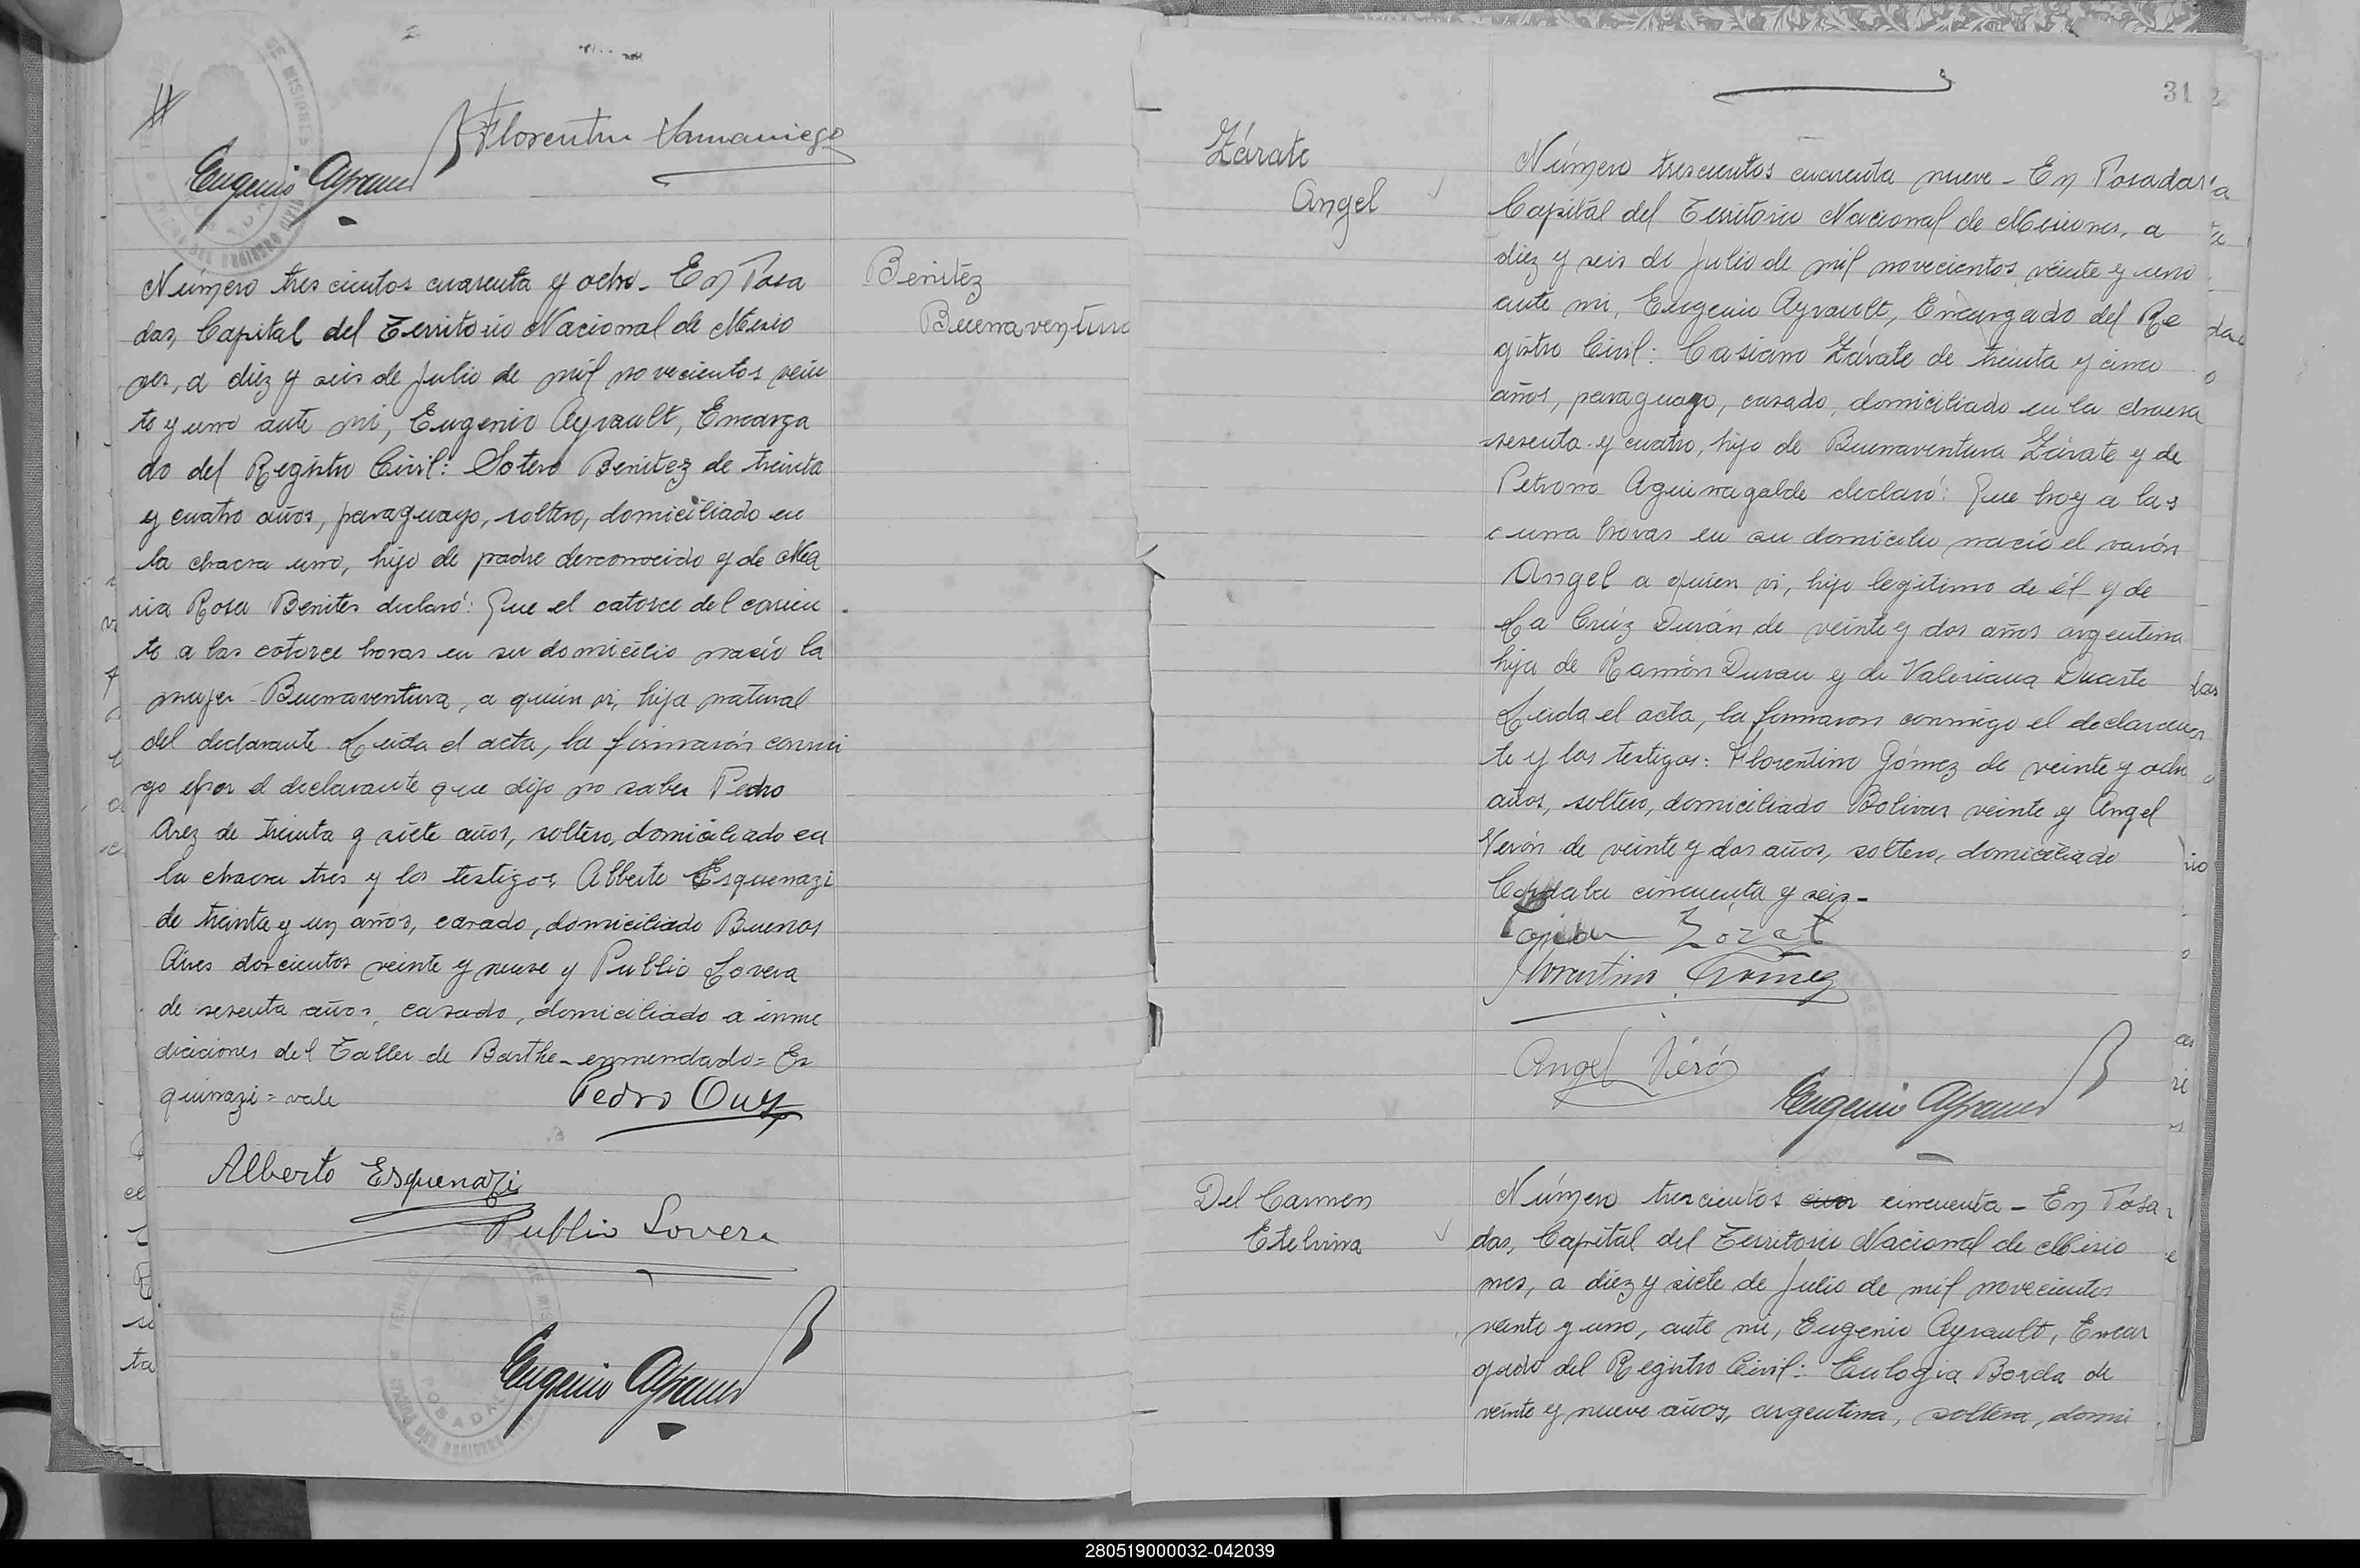 Florentin Samaniego
Eugenio Ayrault
Número trescientos cuarenta y ocho - En Posa
das, Capital del Territorio Nacional de Misio
nes, a diez y seis de Julio de mil novecientos vein
te y uno ante mi, Eugenio Ayrault, Encarga
do del Registro Civil: Sotero Benitez de treinta
y cuatro años, paraguayo, soltero, domiciliado en
la chacra uno, hijo de padre desconocido y de Ma
ria Rosa Benites declaró: Que el catorce del corrien
te a las catorce horas en su domicilio nació la
mujer Buenaventura, a quien vi, hija natural
del declarante. Leida el acta, la firmarón conmi
go por el declarante que dijo no saber Pedro
Arez de treinta y siete años, soltero, domiciliado en
la chacra tres y los testigos, Alberto Esquenazi
de treinta y un años, casado, domiciliado Buenos
Aires doscientos veinte y nueve y Publio Lovera
de sesenta años, casado, domiciliado a inme
diciones del Taller de Barthe - enmendado = Es
quinazi = vale
Pedro
Alberto Esquenazi
Publio Lovera
Eugenio Ayrault
Benitez
Buenaventura
31
Zárate
Angel
Número trescientos cuarenta nueve - En Posadas
Capital del Territorio Nacional de Misiones, a
diez y seis de Julio de mil novecientos veinte y uno
ante mi, Eugenio Ayrault, Encargado del Re
gistro Civil: Casiano Zárate de treinta y cinco
años, paraguayo, casado, domiciliado en la chacra
sesenta y cuatro, hijo de Buenaventura Zárate y de
Petrona Aguinagalde declaró: Que hoy a las
una horas en su domicilio nació el varón
Angel a quien vi, hijo legitimo de él y de
La Crúz Durán de veinte y dos años argentina
hija de Ramón Duran y de Valeriana Duarte
Leida el acta, la firmaron conmigo el declaran
te y los testigos: Florentino Gómez de veinte y ocho
años, soltero, domiciliado Bolivar veinte y Angel
Verón de veinte y dos años, soltero, domiciliado
Cordoba cincuenta y seis -
Florentino Gómez
Angel Verón
Eugenio Ayrault
Del Carmen
Etelvina
Número trescientos cincuenta - En Posa
das, Capital del Territorio Nacional de Misio
nes, a diez y siete de Julio de mil novecientos
veinte y uno, ante mi, Eugenio Ayrault, Encar
gado del Registro Civil: Eulogia Borda de
veinte y nueve años, argentina, soltera, domi
280519000032-042039